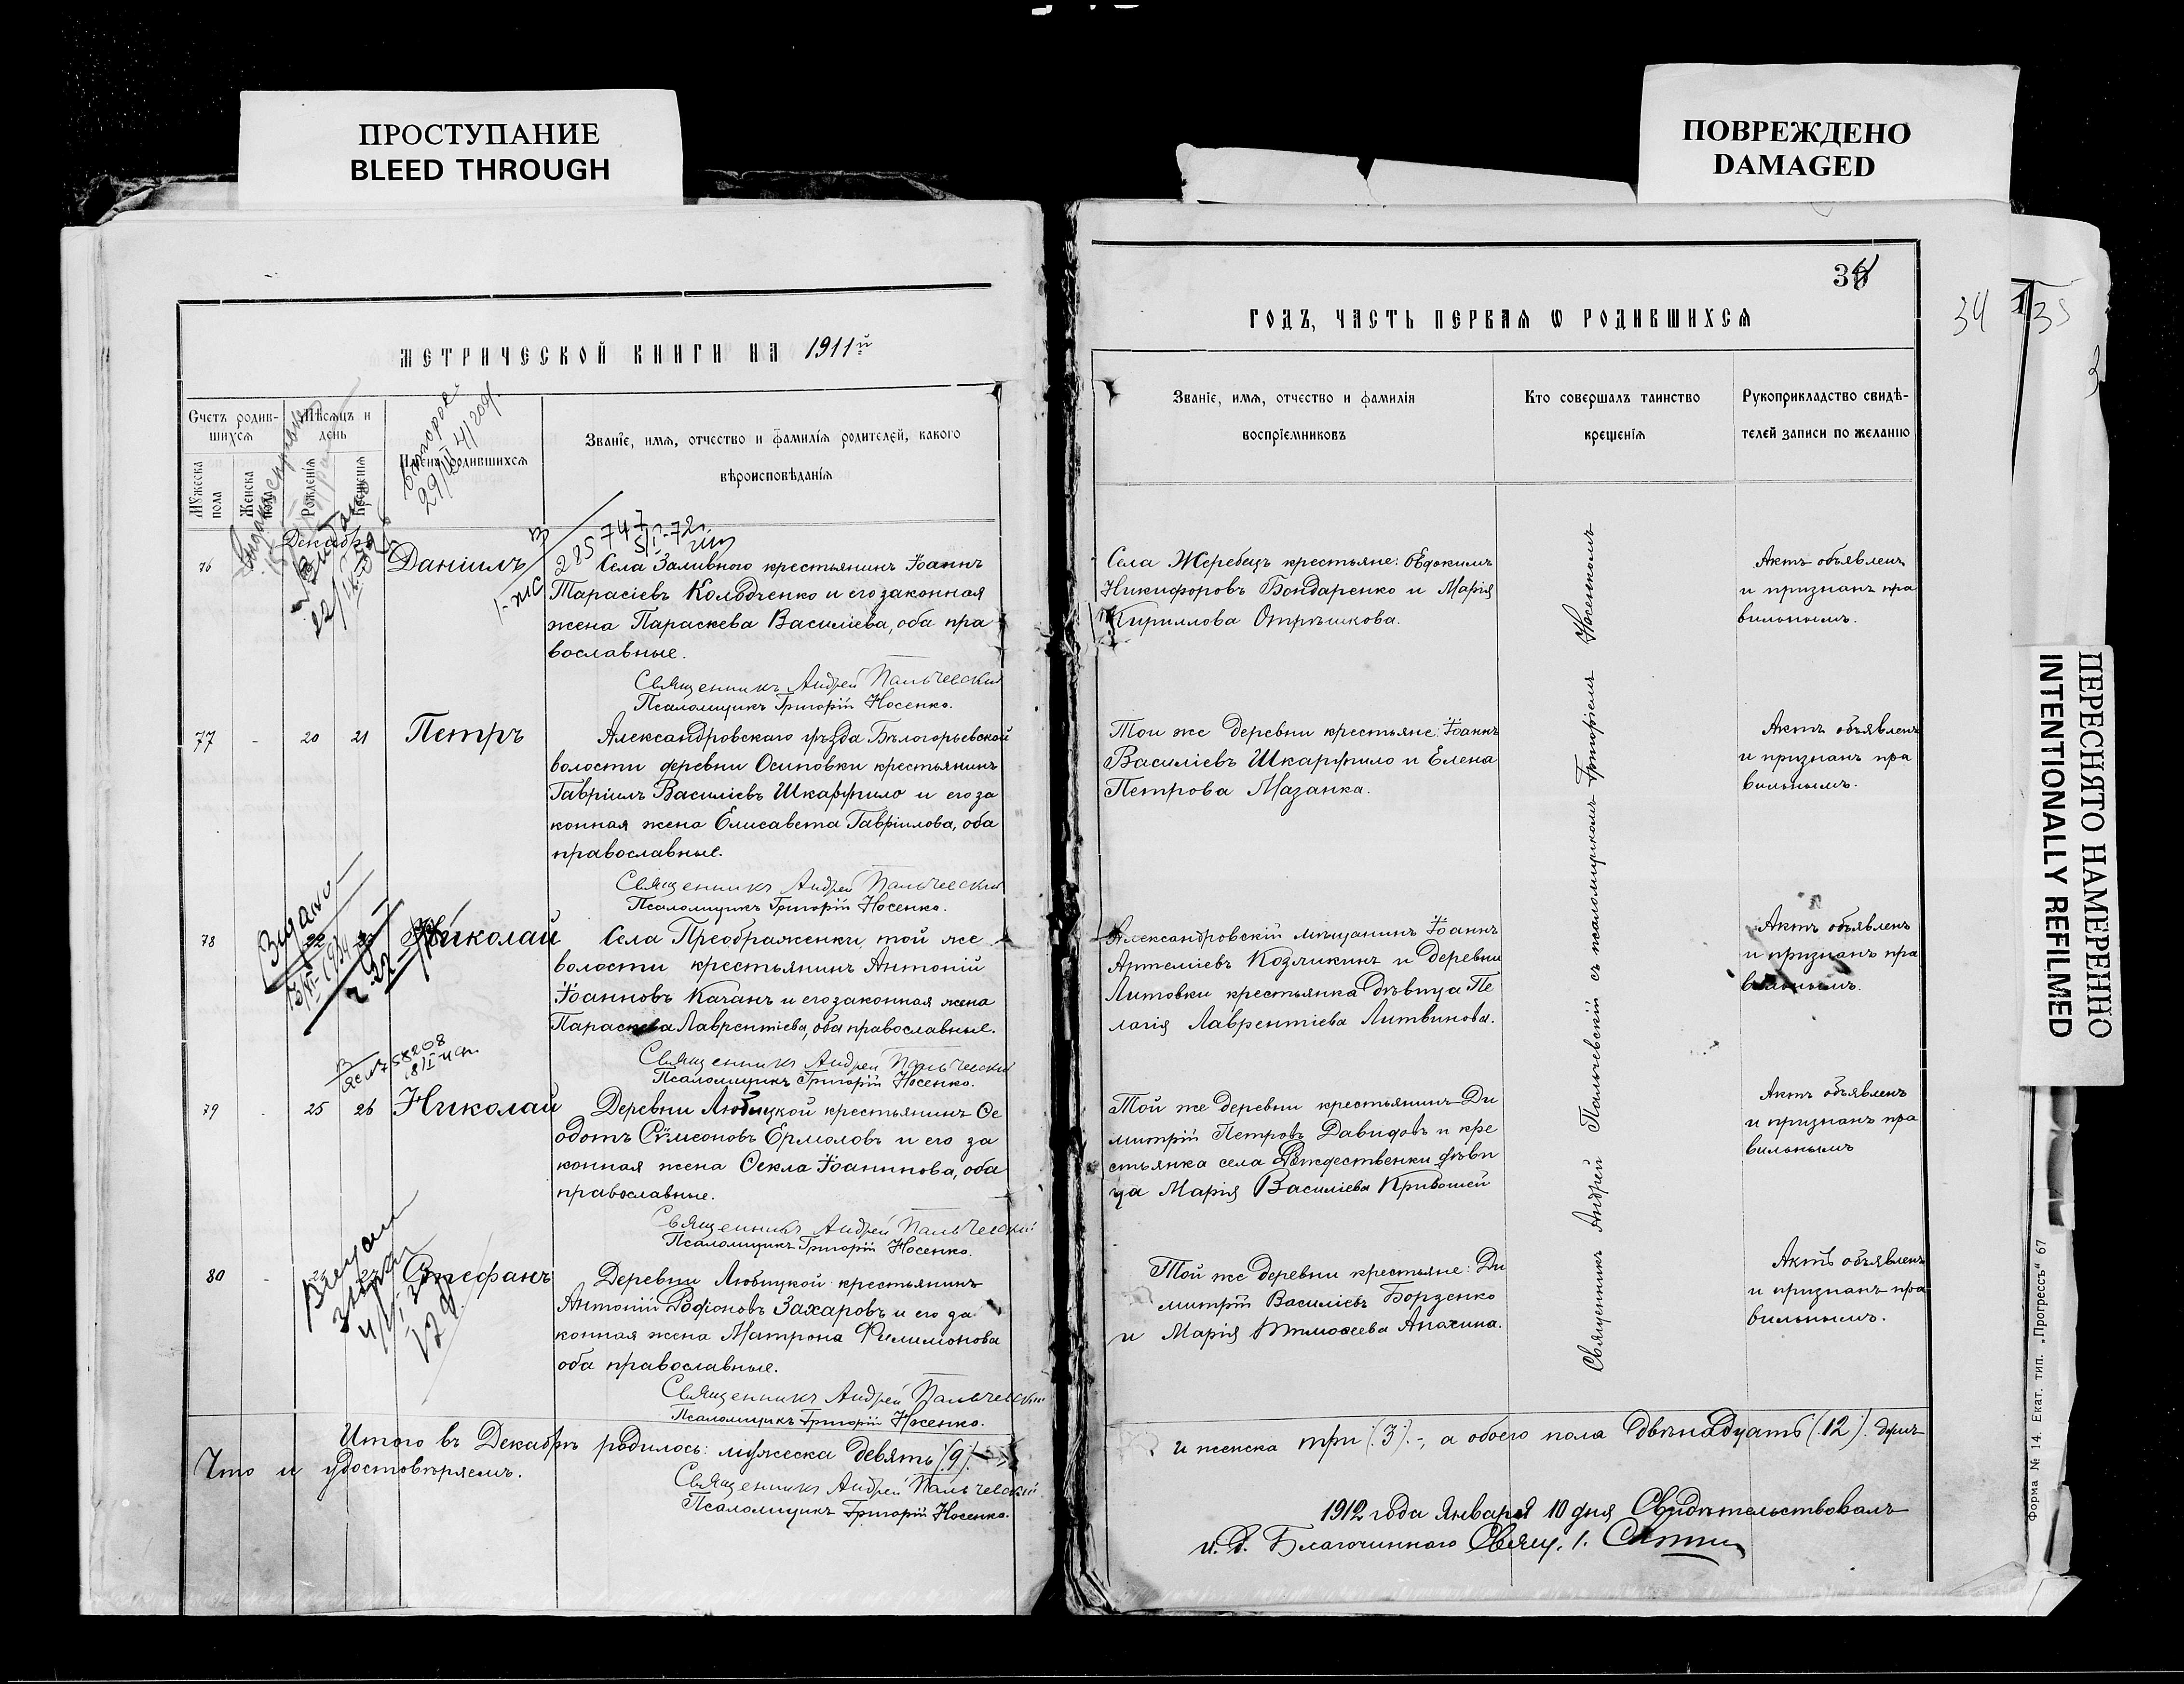 ПРОСТУПАНИЕ
BLEED THROUGH
ПОВРЕЖДЕНО
DAMAGED
МЕТРИЧЕСКОЙ КНИГИ НА 1911й
Счетъ родив-
шихся
Мѣсяцъ и
день
Имена родившихся
Званіе, имя, отчество и фамилія родителей, какого
вѣроисповѣданія
Мужеска
пола
Женска
пола
Рожденія
Крещенія
Декабрь
76
Даніилъ
Села Заливного крестьянинъ Іоаннъ
Тарасіевъ Колодченко и его законная
жена Параскева Василіева, оба пра
вославные.
Священникъ Андрей Пальчевскій
Псаломщикъ Григорій Носенко.
77 - 20 21 Петръ
Александровскаго уѣзда Бѣлогорьевской
волости деревни Осиповки крестьянинъ
Гавріилъ Василіевъ и его за
конная жена Елисавета Гавріилова, оба
православные.
Священникъ Андрей Пальчевскій
Псаломщикъ Григорій Носенко.
78
Николай
Села Преображенки, той же
волости крестьянинъ Антоній
Іоанновъ Качанъ и его законная жена
Параскева Лаврентіева, оба православные.
Священникъ Андрей Пальчевскій
Псаломщикъ Григорій Носенко.
79 - 25 26 Николай
Деревни Любицкой крестьянинъ Ѳе
одотъ Сѵмеоновъ Ермоловъ и его за
конная жена Ѳекла Іоаннова, оба
православные.
Священникъ Андрей Пальчевскій
Псаломщикъ Григорій Носенко.
80 -
Стефанъ
Деревни Любицкой крестьянинъ
Антоній Родіоновъ Захаровъ и его за
конная жена Матрона Филимонова
оба православные.
Священникъ Андрей Пальчевскій
Псаломщикъ Григорій Носенко.
Итого въ Декабрѣ родилось: мужеска девять (9)
Что и удостовѣряемъ.
Священникъ Андрей Пальчевскій
Псаломщикъ Григорій Носенко.
ГОДЪ, ЧАСТЬ ПЕРВАЯ Ѡ РОДИВШИХСЯ
34
35
Званіе, имя, отчество и фамилія
воспріемниковъ
Кто совершалъ таинство
крещенія
Рукоприкладство свидѣ-
телей записи по желанію
Села Жеребецъ крестьяне: Евдокимъ
Никифоровъ Бондаренко и Марія
Кириллова Отрѣшкова.
Актъ объявленъ
и признанъ пра
вильнымъ.
Той же деревни крестьяне: Іоаннъ
Василіевъ и Елена
Петрова Мазанка.
Актъ объявленъ
и признанъ пра
вильнымъ.
Александровскій мѣщанинъ Іоаннъ
Артеміевъ Козликинъ и деревни
Литовки крестьянка дѣвица Пе
лагія Лаврентіева Литвинова.
Актъ объявленъ
и признанъ пра
вильнымъ.
Той же деревни крестьянинъ Ди
митрій Петровъ Давидовъ и кре
стьянка села Рождественки дѣви
ца Марія Василіева Кривошей
Актъ объявленъ
и признанъ пра
вильнымъ
Той же деревни крестьяне: Ди
митрій Василіевъ Борзенко
и Марія Тимоѳеева Апахина.
Актъ объявленъ
и признанъ пра
вильнымъ.
Священникъ Андрей Пальчевскій съ псаломщикомъ Григоріемъ Носенкомъ
и женска три (3).-, а обоего пола двѣнадцать (12) душъ
1912 года Января 10 дня Свидѣтельствовалъ
и. д. Благочиннаго Свящ. І.
ПЕРЕСНЯТО НАМЕРЕННО
INTENTIONALLY REFILMED
Форма № 14. Екат. тип. „Прогрессъ“ 67